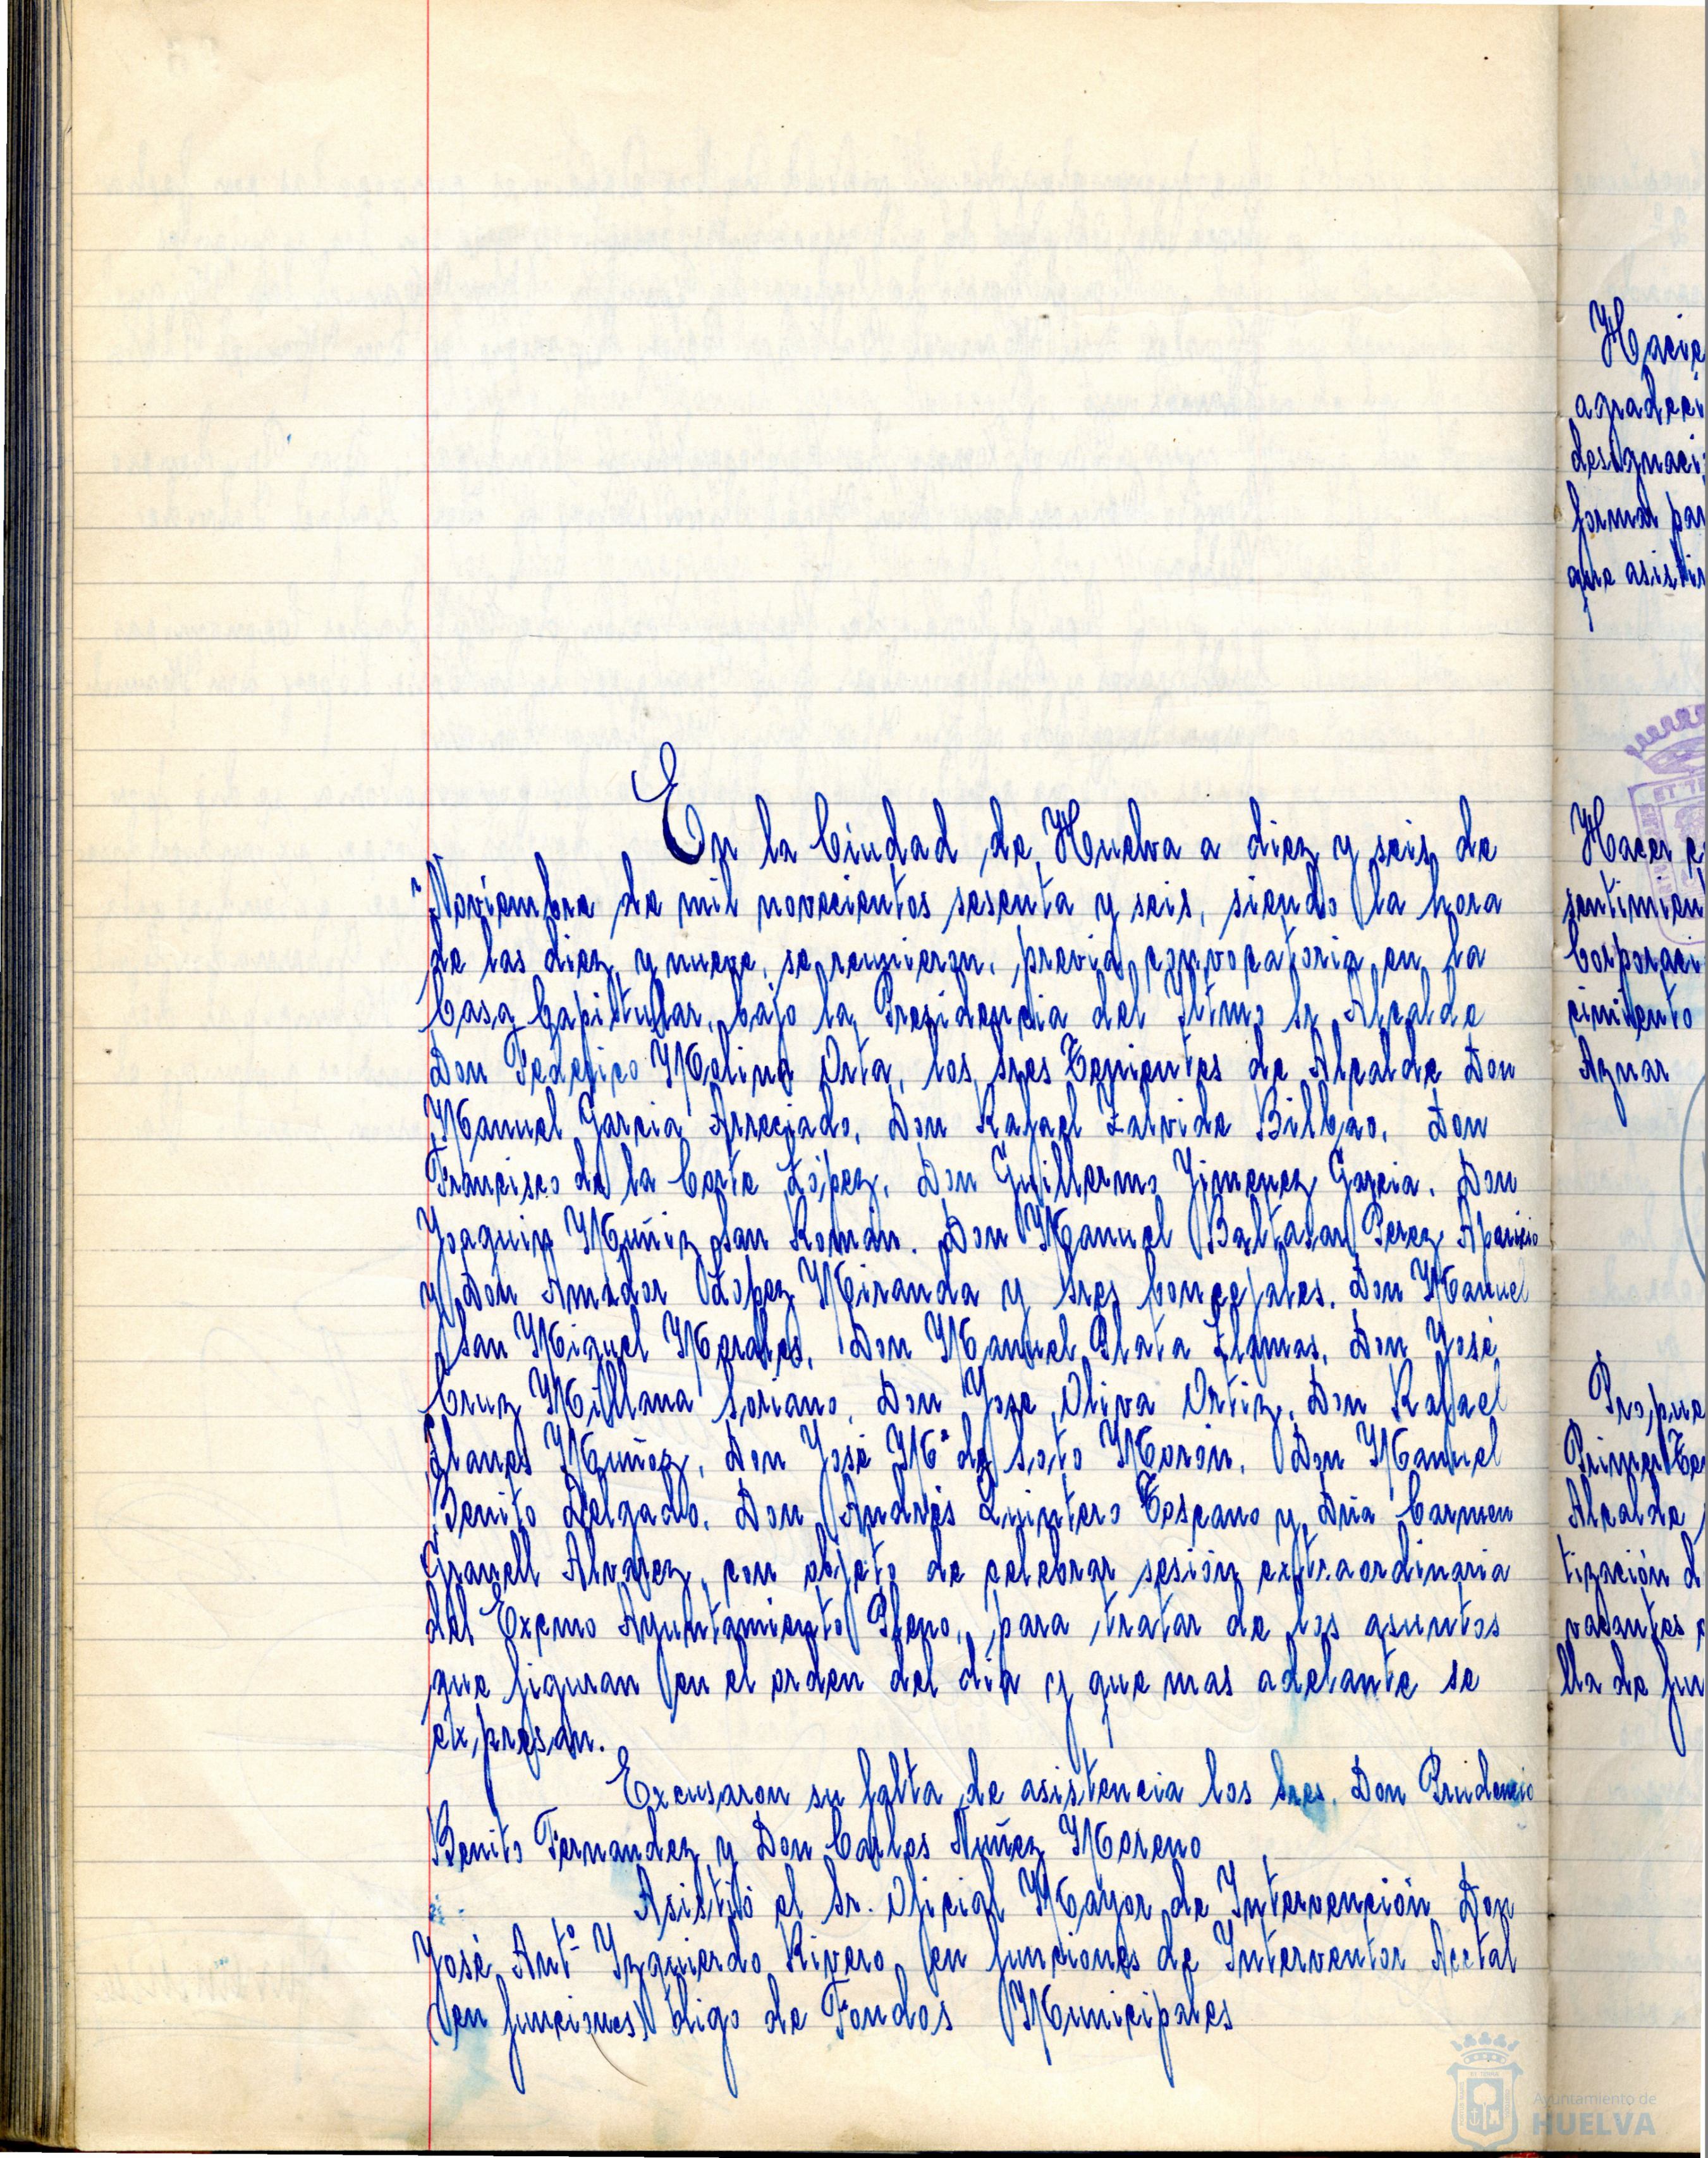 En la Ciudad de Huelva a diez y seis de
Noviembre de mil novecientos sesenta y seis, siendo la hora
de las diez y nueve, se reunieron, previa convocatoria en la
Casa Capitular, bajo la Presidencia del Iltmo Sr Alcalde
Don Federico Molina Orta, los Sres Tenientes de Alcalde Don
Manuel Garcia Arreciado, Don Rafael Zalvide Bilbao, Don
Francisco de la Corte López, Don Guillermo Jimenez Garcia, Don
Joaquin Muñiz San Román. Don Manuel Baltasar Perez Aparicio
y Don Amador López Miranda y Sres Concejales, Don Manuel
San Miguel Morales, Don Manuel Plata Llamas, Don José
Cruz Millana Soriano, Don Jose Oliva Ortiz, Don Rafael
Llanes Muñoz, Don José Mª de Soto Morón, Don Manuel
Benito Delgado, Don Andrés Quintero Toscano y Dña Carmen
Granell Alvarez, con objeto de celebrar sesión extraordinaria
del Excmo Ayuntamiento Pleno, para tratar de los asuntos
que figuran en el orden del día y que mas adelante se
expresan.
Excusaron su falta de asistencia los Sres. Don Prudencio
Benito Fernandez y Don Carlos Nuñez Moreno
Asistió el Sr. Oficial Mayor de Intervención Don
José Antº Izquierdo Rivero en funciones de Interventor Acctal
(en funciones) digo de Fondos Municipales
Hacer
sentimien
Corporaci
cimiento
Aznar
Alcalde
tización d
vacantes
lla de fun
Ayuntamiento de
HUELVA